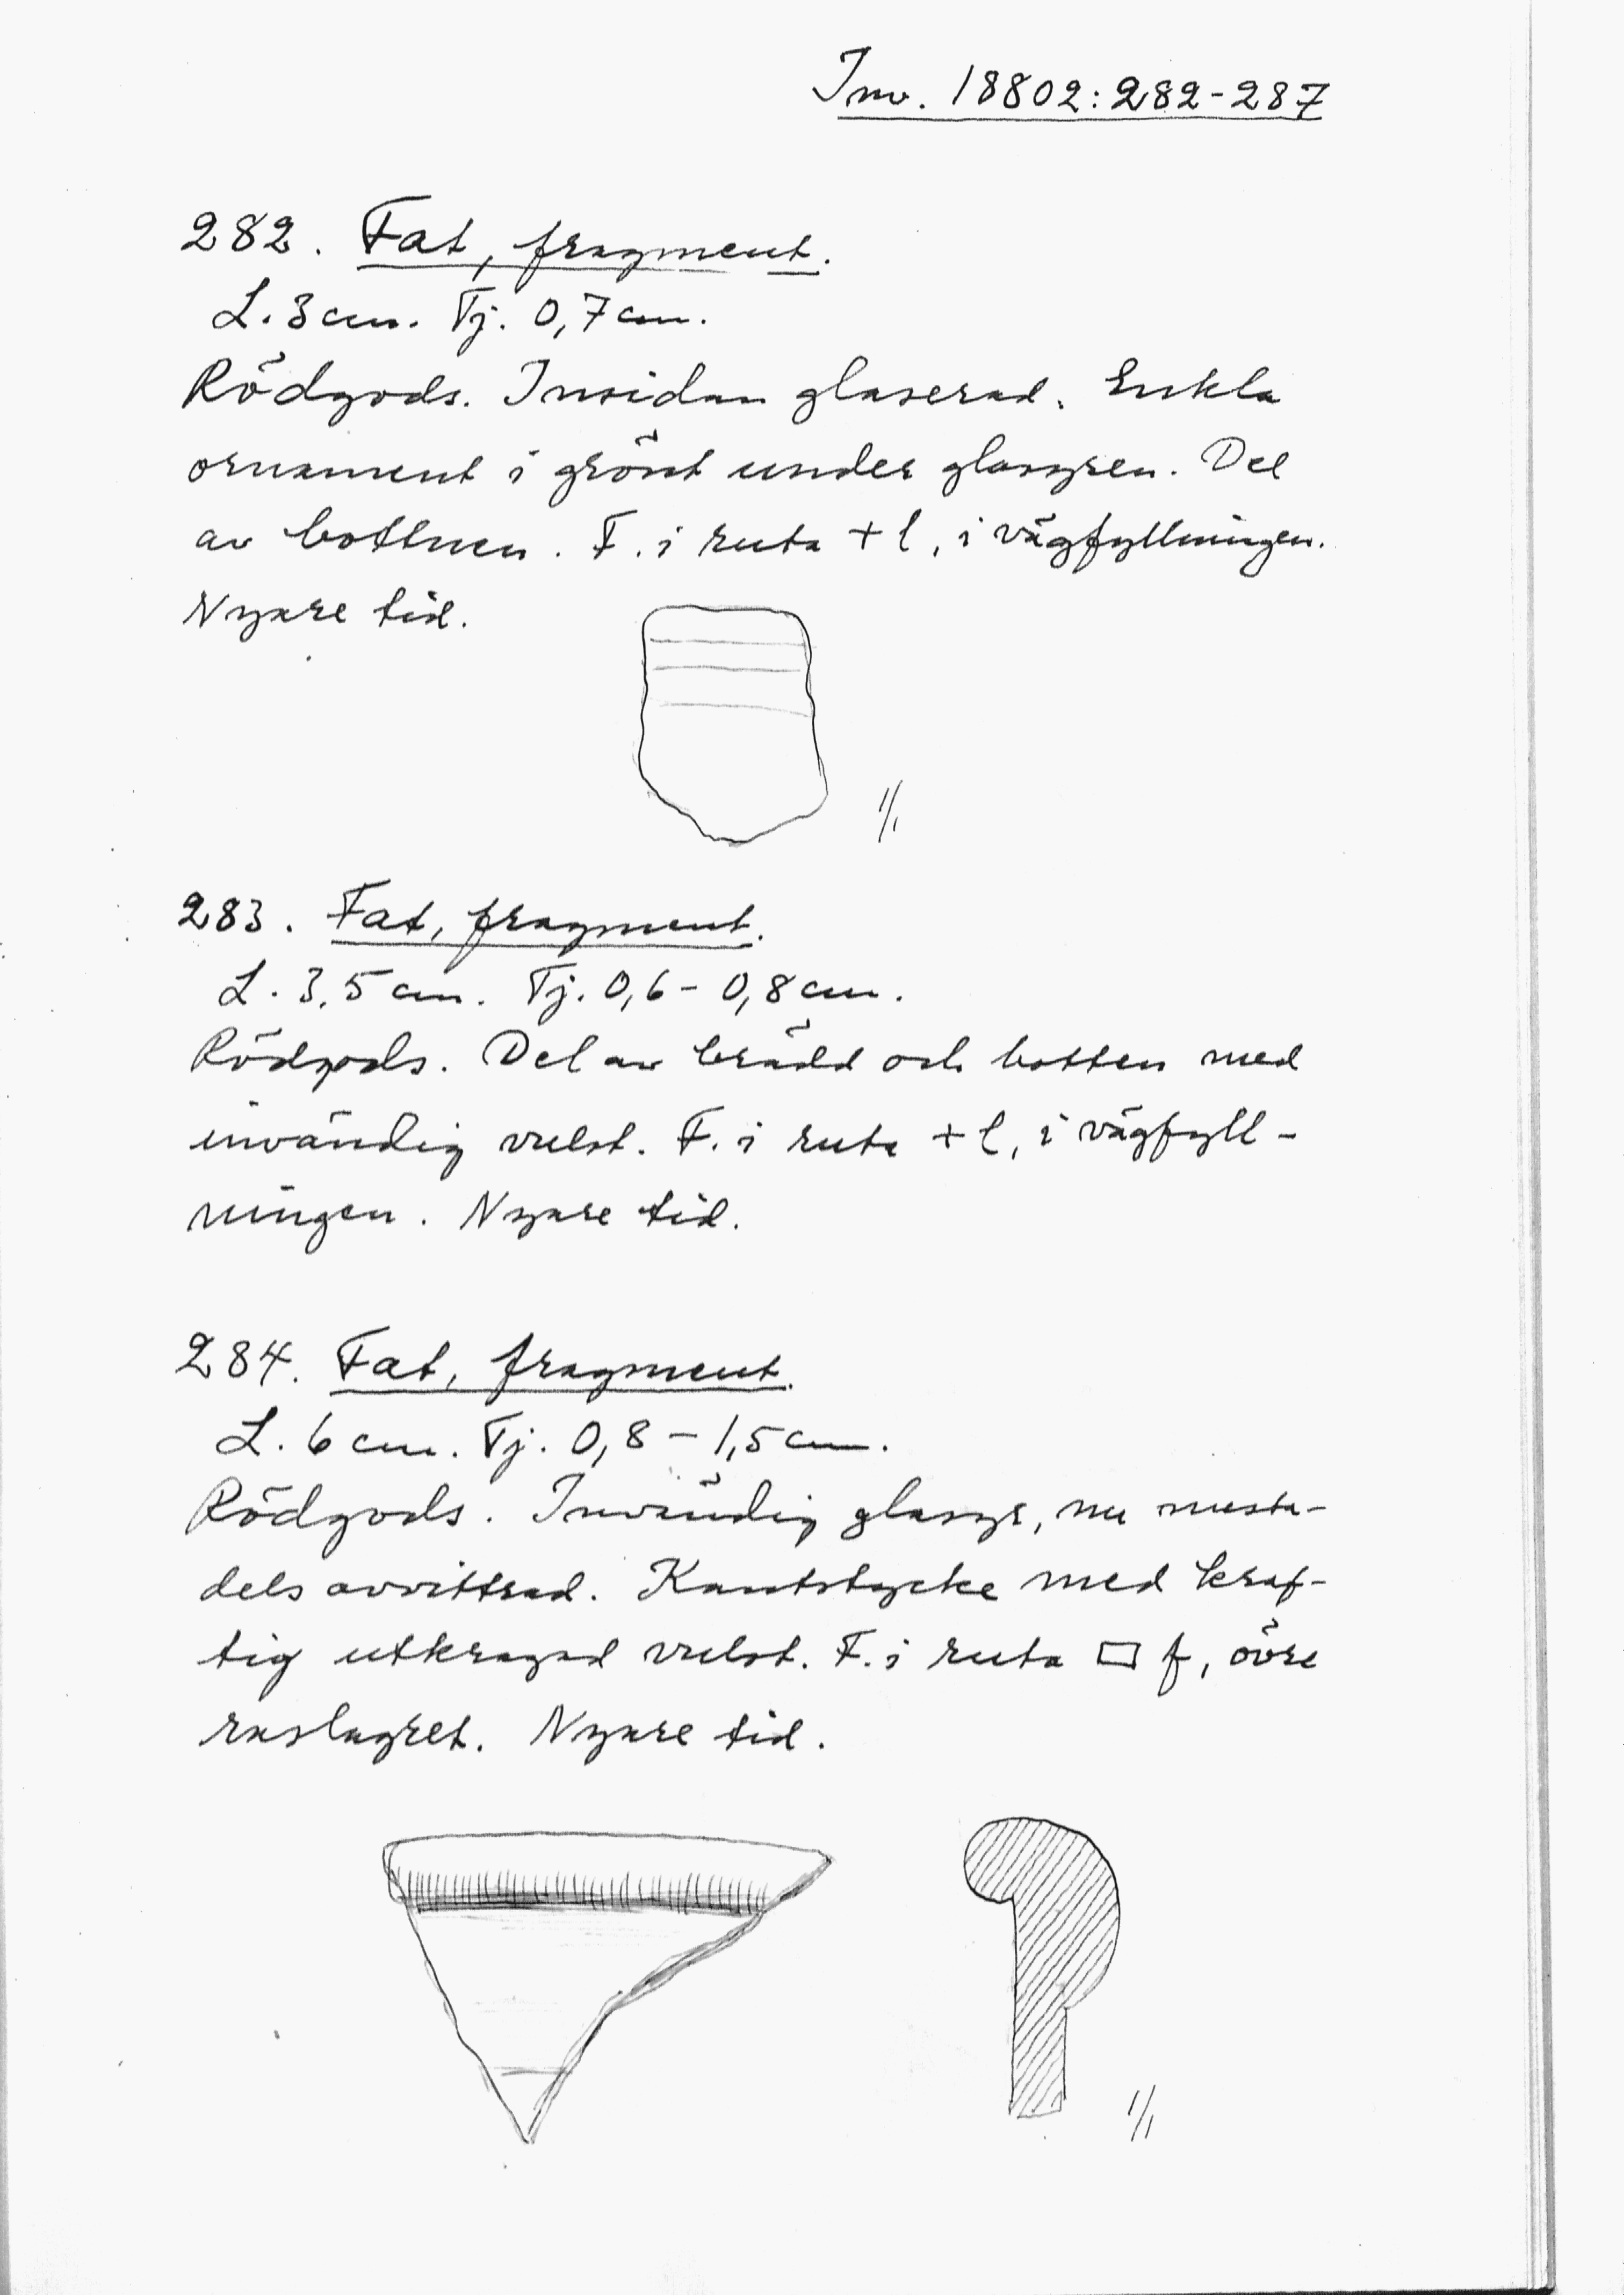 Inv. 18802:282-287
282. Fat, fragment.
L. 3 cm. Tj. 0,7 cm.
Rödgods. Insidan glaserad. Enkla
ornament i grönt under glasyren. Del
av bottnen. F. i ruta + l, i vägfyllningen.
Nyare tid.
1/1
283. Fat, fragment.
L. 3,5 cm. Tj. 0,6 - 0,8 cm.
Rödgods. Del av brädd och botten med
invändig vulst. F. i ruta + l, i vägfyll-
ningen. Nyare tid.
284. Fat, fragment.
L. 6 cm. Tj. 0,8 - 1,5 cm.
Rödgods. Invändig glasyr, nu mesta-
dels avvittrad. Kantstycke med kraf-
tig utkragad vulst. F. i ruta □ f, övre
raslagret. Nyare tid.
1/1